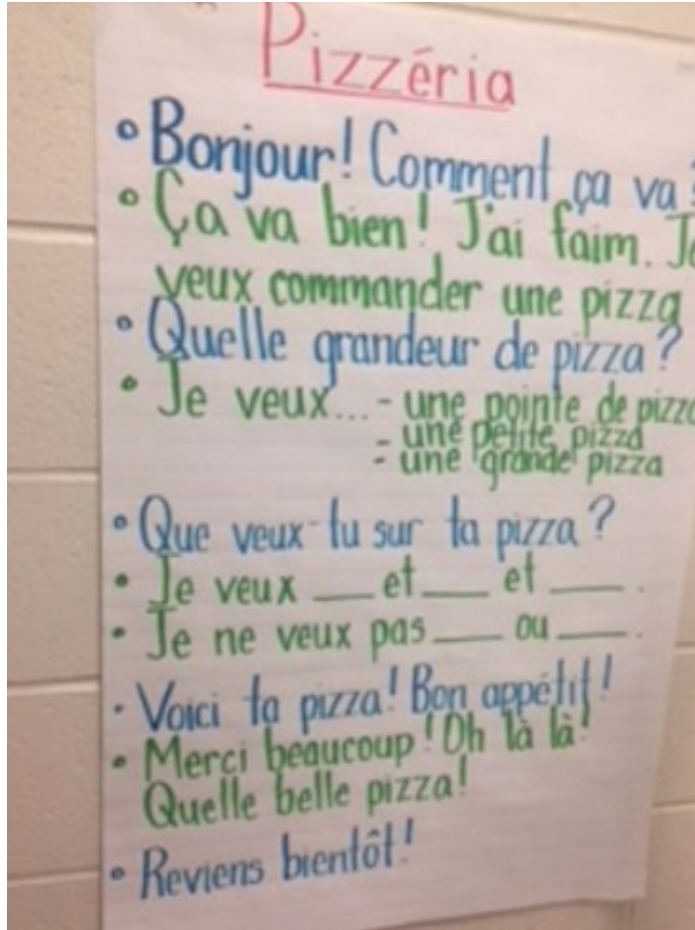 Pizzéria
• Bonjour! Comment ça va?
• Ça va bien! J'ai faim. Je
veux commander une pizza
• Quelle grandeur de pizza?
• Je veux... - une pointe de pizza
- une petite pizza
- une grande pizza
• Que veux-tu sur ta pizza?
• Je veux ___ et ___ et ___.
• Je ne veux pas ___ ou ___.
• Voici ta pizza! Bon appétit!
• Merci beaucoup! Oh là là!
Quelle belle pizza!
• Reviens bientôt!